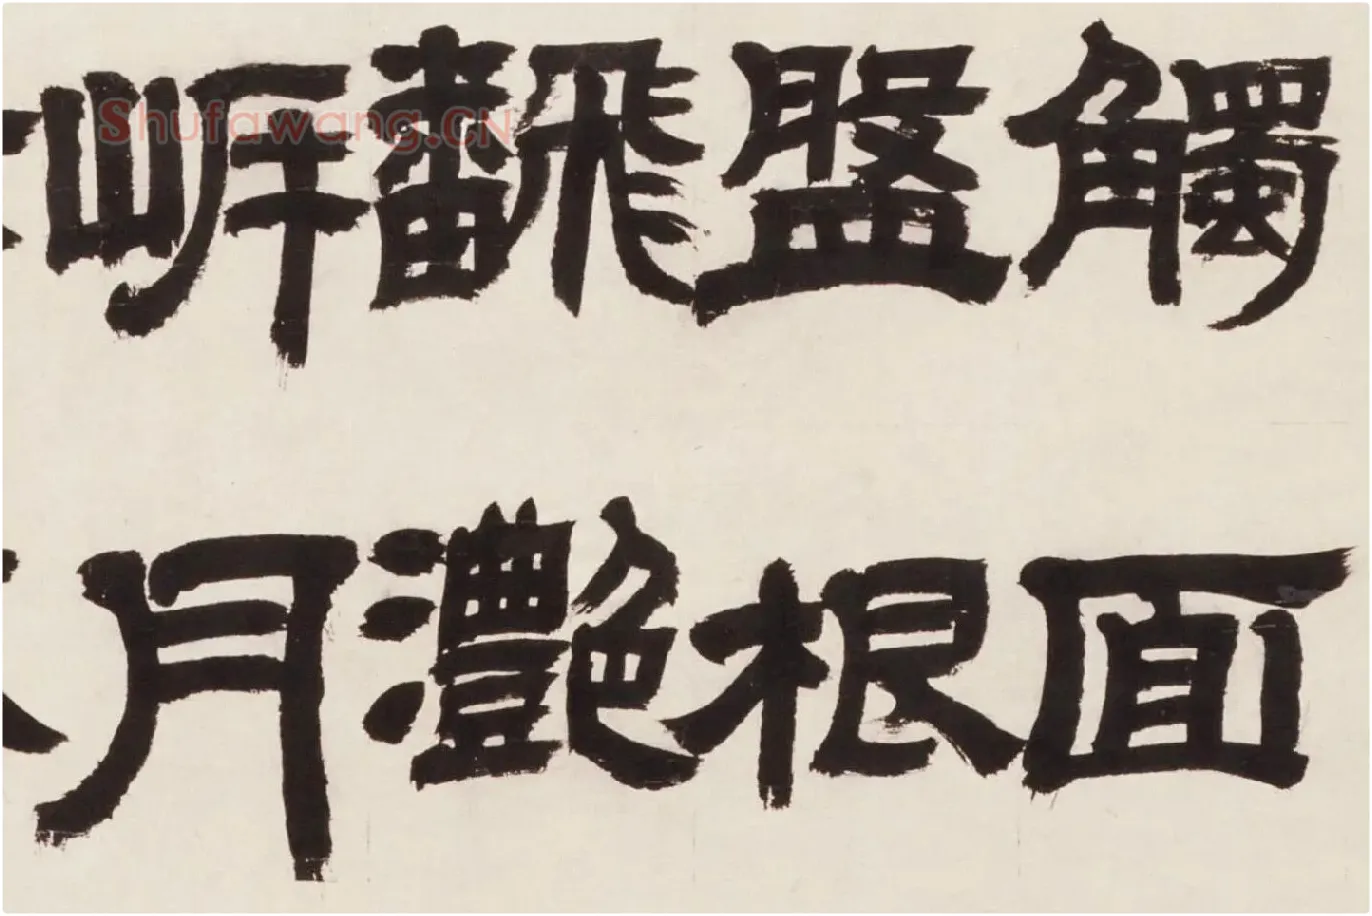 觸面
盤根
飜灩
岸月
Shufawang.CN